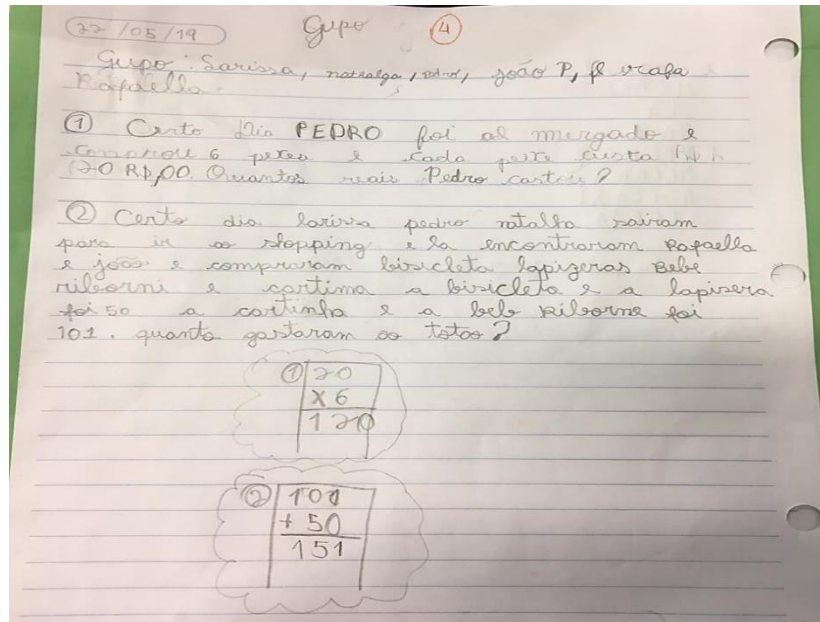 22/05/19 Gupo 4
Gupo: Larissa, João P,
Rafaella.
① Certo Dia PEDRO foi al mergado e
comprou 6 pexes e cada pexe custa
20 R$,00. Quantos reais Pedro
② Certo dia larissa pedro natalha sairam
para ir ao shopping e la encontraram Rafaella
e joão e compraram bisicleta lapizeras Bebe
riborni e cartima a bisicleta e a lapisera
foi 50 a cartinha e a beb Riborne foi
101. quanto gastaram ao totoo?
① 20
x 6
120
② 101
+ 50
151